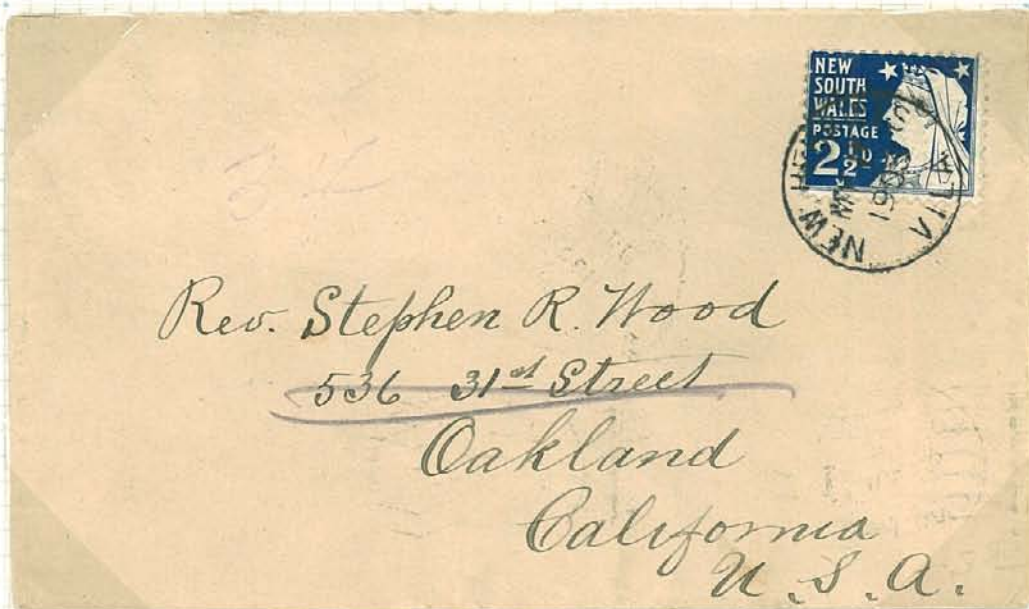 NEW
SOUTH
WALES
POSTAGE
2½D
NEW
VILA
1903
Rev. Stephen R. Wood
536 31st Street
Oakland
California
U. S. A.